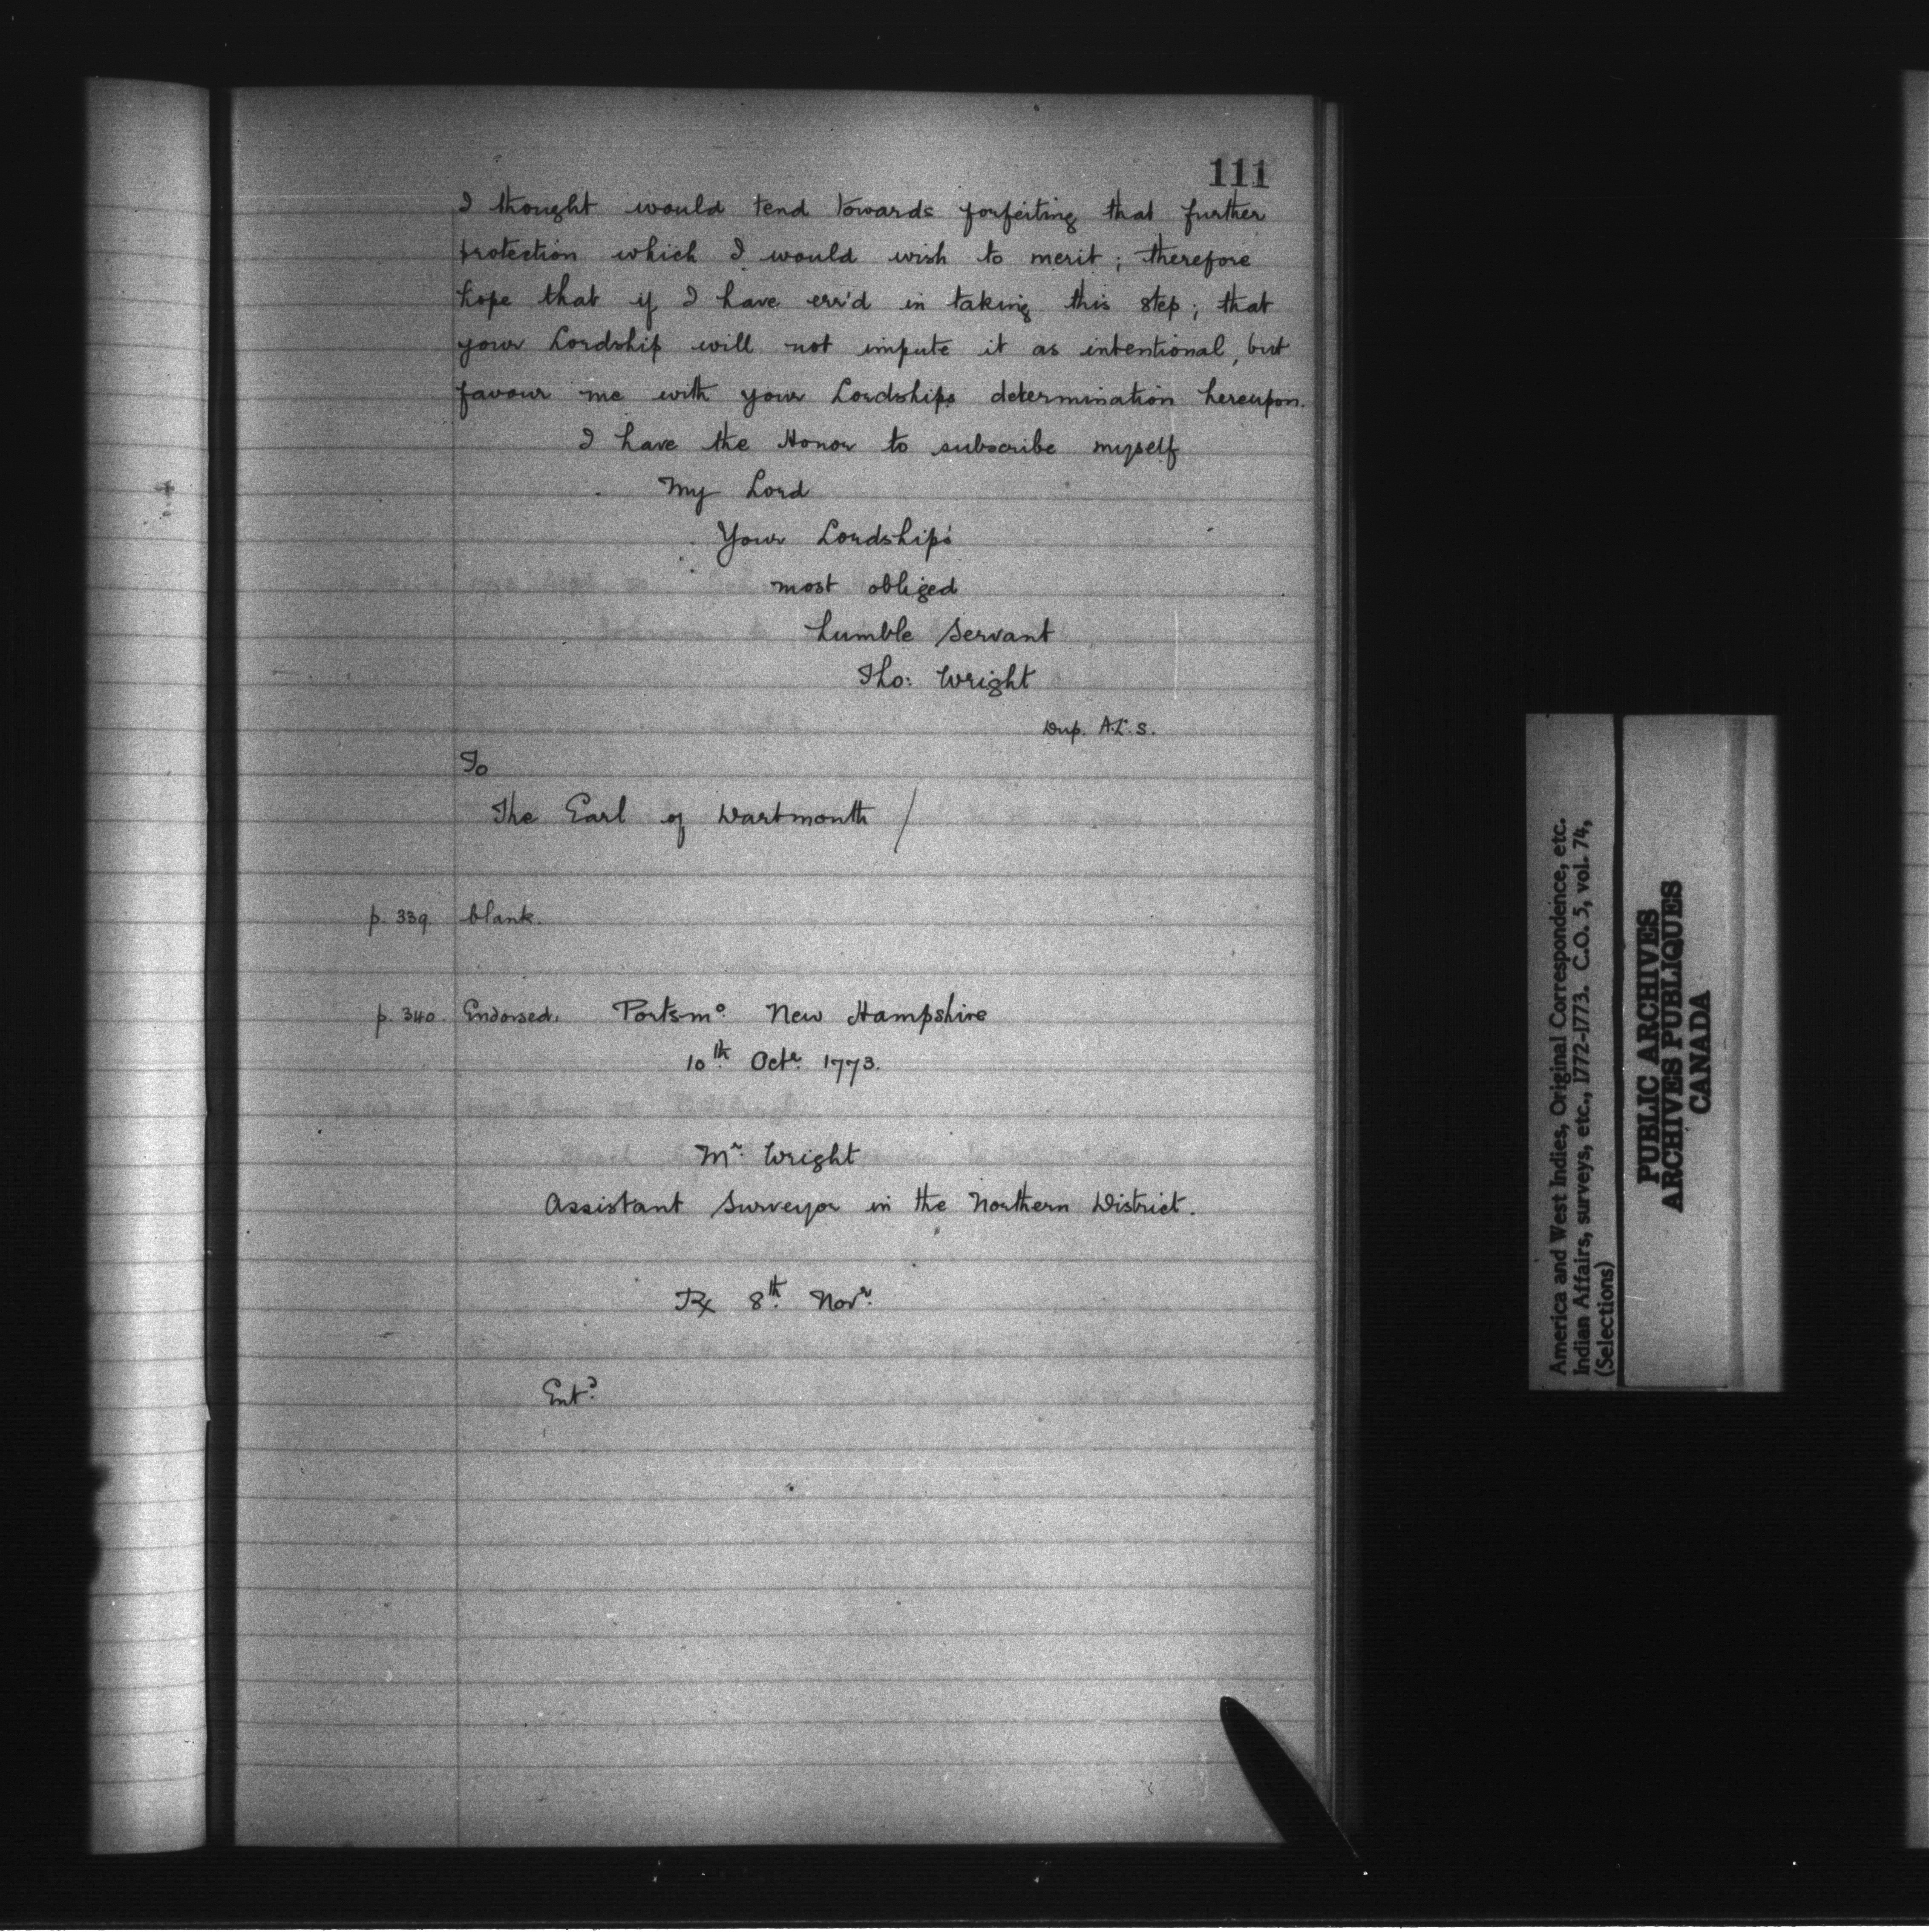 111
I thought would tend towards forfeiting that further
protection which I would wish to merit; therefore
hope that if I have err'd in taking this step; that
your Lordship will not impute it as intentional, but
favour me with your Lordships determination hereupon.
I have the Honor to subscribe myself
My Lord
Your Lordships
most obliged
humble Servant
Tho: Wright
Dup. A.L.S.
To
The Earl of Dartmouth /
p. 339. blank.
p. 340. Endorsed. Portsmo. New Hampshire
10th Octr. 1773.
Mr. Wright
Assistant Surveyor in the Northern District.
Rx 8th Novr.
Entd.
America and West Indies, Original Correspondence, etc.
Indian Affairs, surveys, etc., 1772-1773. C.O. 5, vol. 74,
(Selections)
PUBLIC ARCHIVES
ARCHIVES PUBLIQUES
CANADA